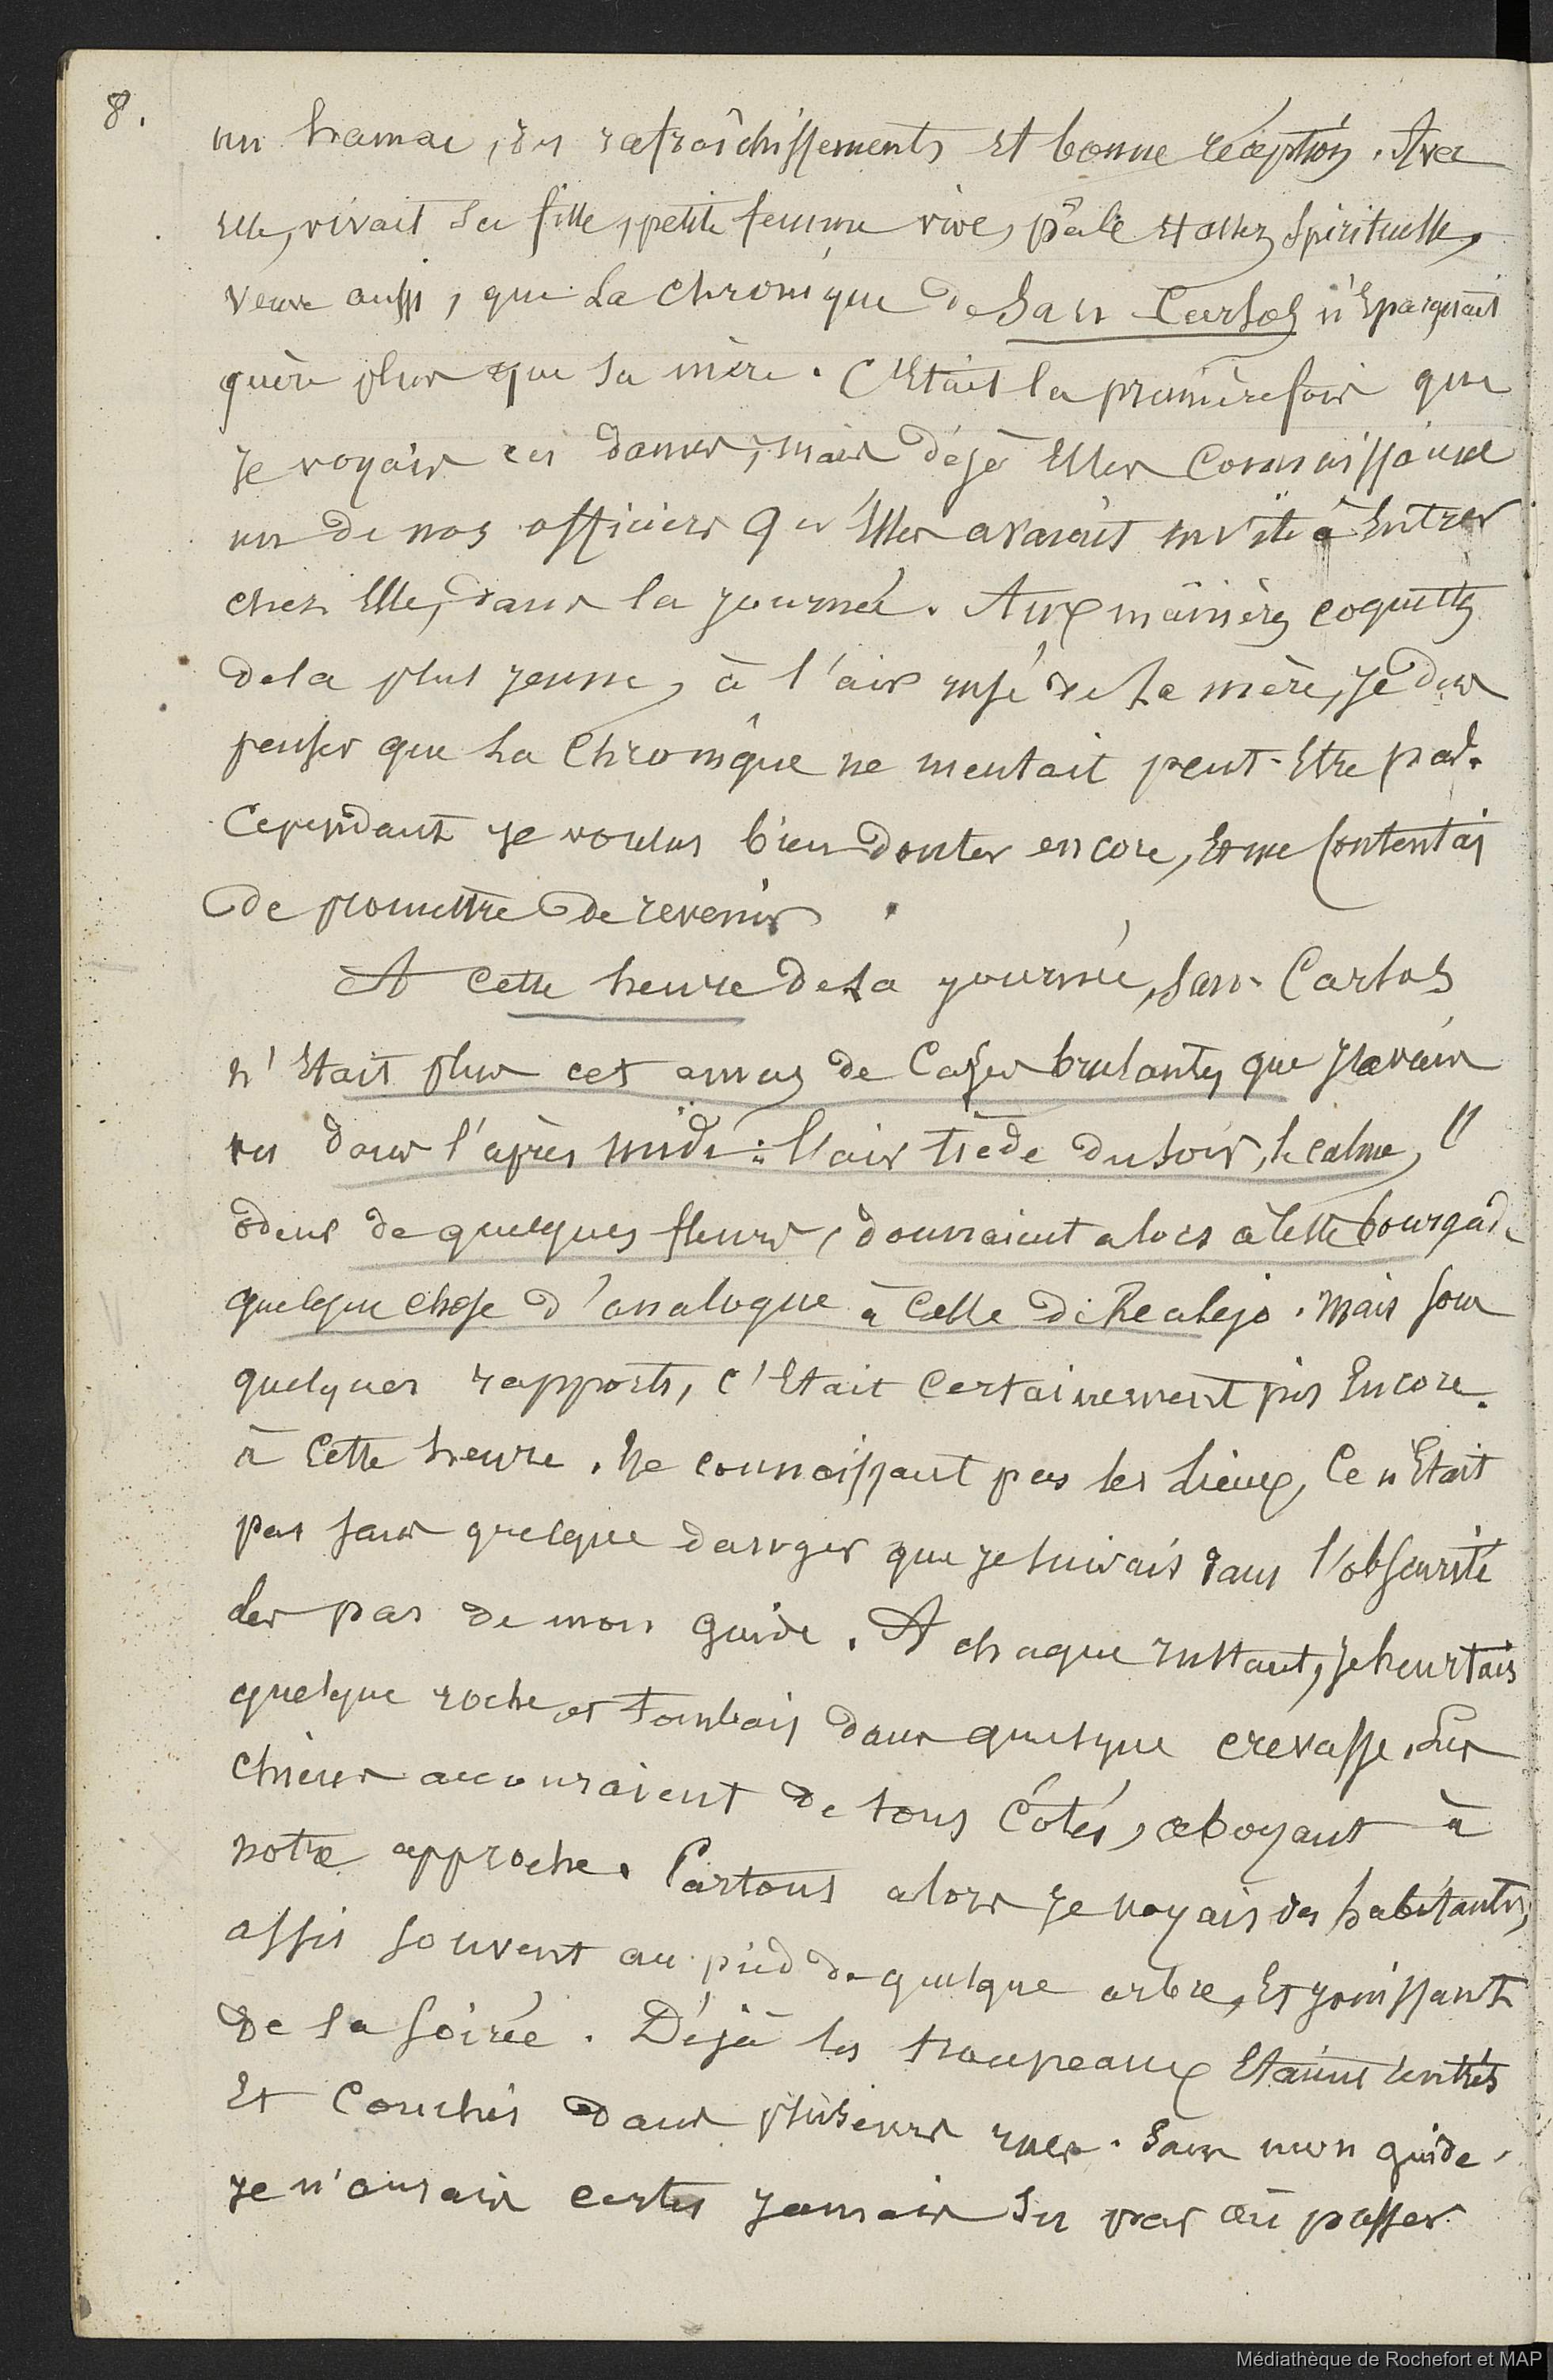 8.
un hamac, des rafraîchissements et bonne réception. Avec
elle, vivait sa fille, petite femme vive, pâle et assez spirituelle,
veuve aussi, que la chronique de San Carlos n'épargnait
guère plus que sa mère. C'était la première fois que
je voyais ces dames, mais déjà elles connaissaient
un de nos officiers qu'elles avaient invité à entrer
chez elle, dans la journée. Aux manières coquettes
de la plus jeune, à l'air rusé de la mère, je dus
penser que la chronique ne mentait peut-être pas.
Cependant je voulus bien douter encore, et me contentai
de promettre de revenir.
A cette heure de la journée, San-Carlos
n'était plus cet amas de cases brulantes que j'avais
vu dans l'après midi : l'air tiède du soir, le calme, l'
odeur de quelques fleurs, donnaient alors à cette bourgade
quelque chose d'analogue à celle de Realejo. Mais sous
quelques rapports, c'était certainement pis encore.
à cette heure. Ne connaissant pas les lieux, ce n'était
pas sans quelque danger que je suivais dans l'obscurité
les pas de mon guide. A chaque instant, je heurtais
quelque roche et tombais dans quelque crevasse. Les
chiens accouraient de tous côtés, aboyant à
notre approche. Partout alors je voyais des habitants,
assis souvent au pied de quelque arbre, et jouissant
de la soirée. Déjà les troupeaux étaient rentrés
et couchés dans plusieurs rues. Sans mon guide
je n'aurais certes jamais su par où passer
Médiathèque de Rochefort et MAP